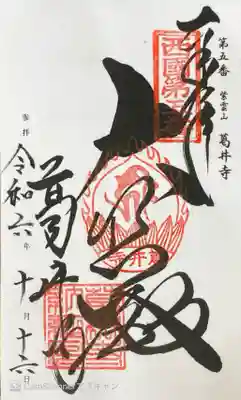 第五番 紫雲山 葛井寺
奉拝
西國第五番
大悲殿
葛井寺
奉拝
令和六年 十月 十六日